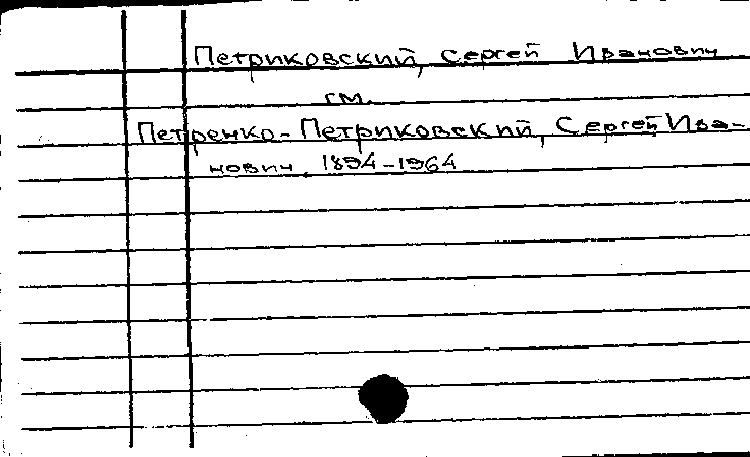 Петриковский, Сергей Иванович
см.
Петренко-Петриковский, Сергей Ива-
нович, 1894-1964